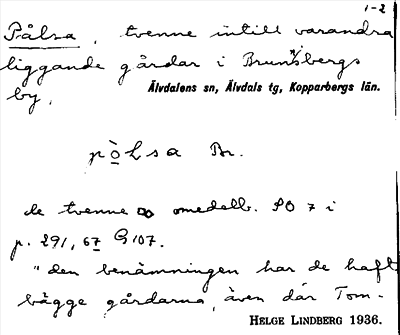 1-2
Pålsa, tvenne intill varandra
liggande gårdar i Brunnsbergs
by,
Älvdalens sn, Älvdals tg, Kopparbergs län.
pò̱lsa Br.
de tvenne omedelb. SO 7 i
p. 291, 67 G 107.
"den benämningen har de haft
bägge gårdarna, även där Tom-
HELGE LINDBERG 1936.